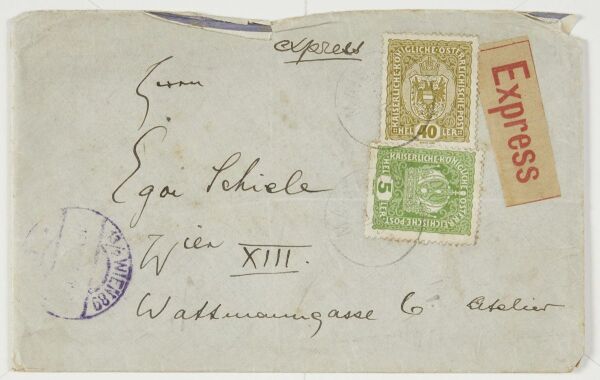 express
Herrn
Egon Schiele
Wien XIII.
Wattmanngasse 6 Atelier
KAISERLICHE KÖNIGLICHE ÖSTERREICHISCHE POST
HELLER
40
KAISERLICHE KÖNIGLICHE ÖSTERREICHISCHE POST
5
HELLER
Express
WIEN 89